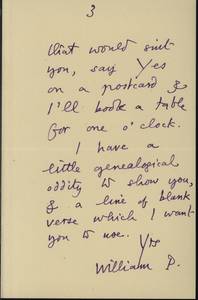 3
that would suit
you, say Yes
on a postcard &
I'll book a table
for one o'clock.
I have a
little genealogical
oddity to show you,
& a line of blank
verse which I want
you to use.
Yrs
William P.